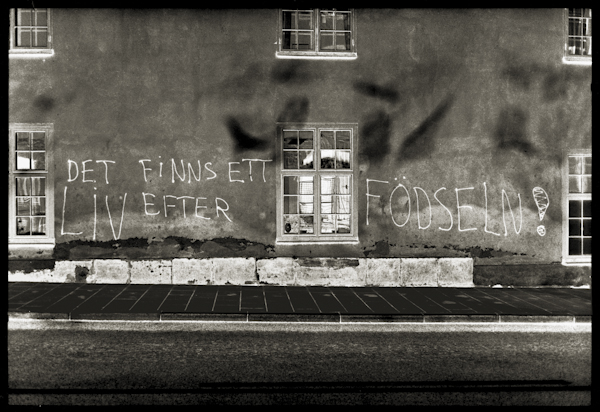 DET FINNS ETT
LIV EFTER FÖDSELN!